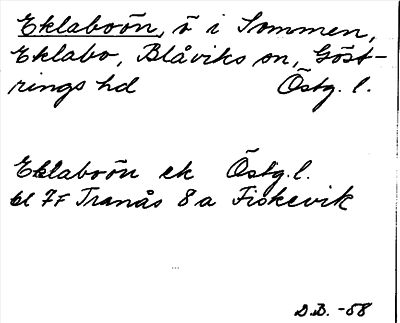 Eklaboön, ö i Sommen,
Eklabo, Blåviks sn, Göst-
rings hd Östg. l.
Eklaboön ek Östg. l.
bl 7F Tranås 8a Fiskevik
D.B. -58